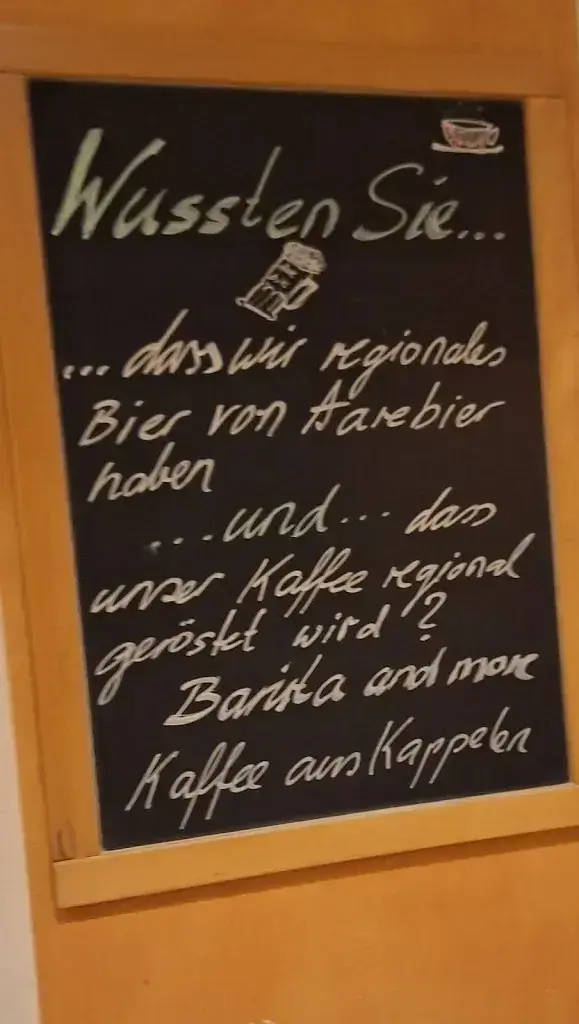 Wussten Sie...
... dass wir regionales
Bier von Aarebier
haben
...und... dass
unser Kaffee regional
geröstet wird ?
Barista and more
Kaffee aus Kappelen